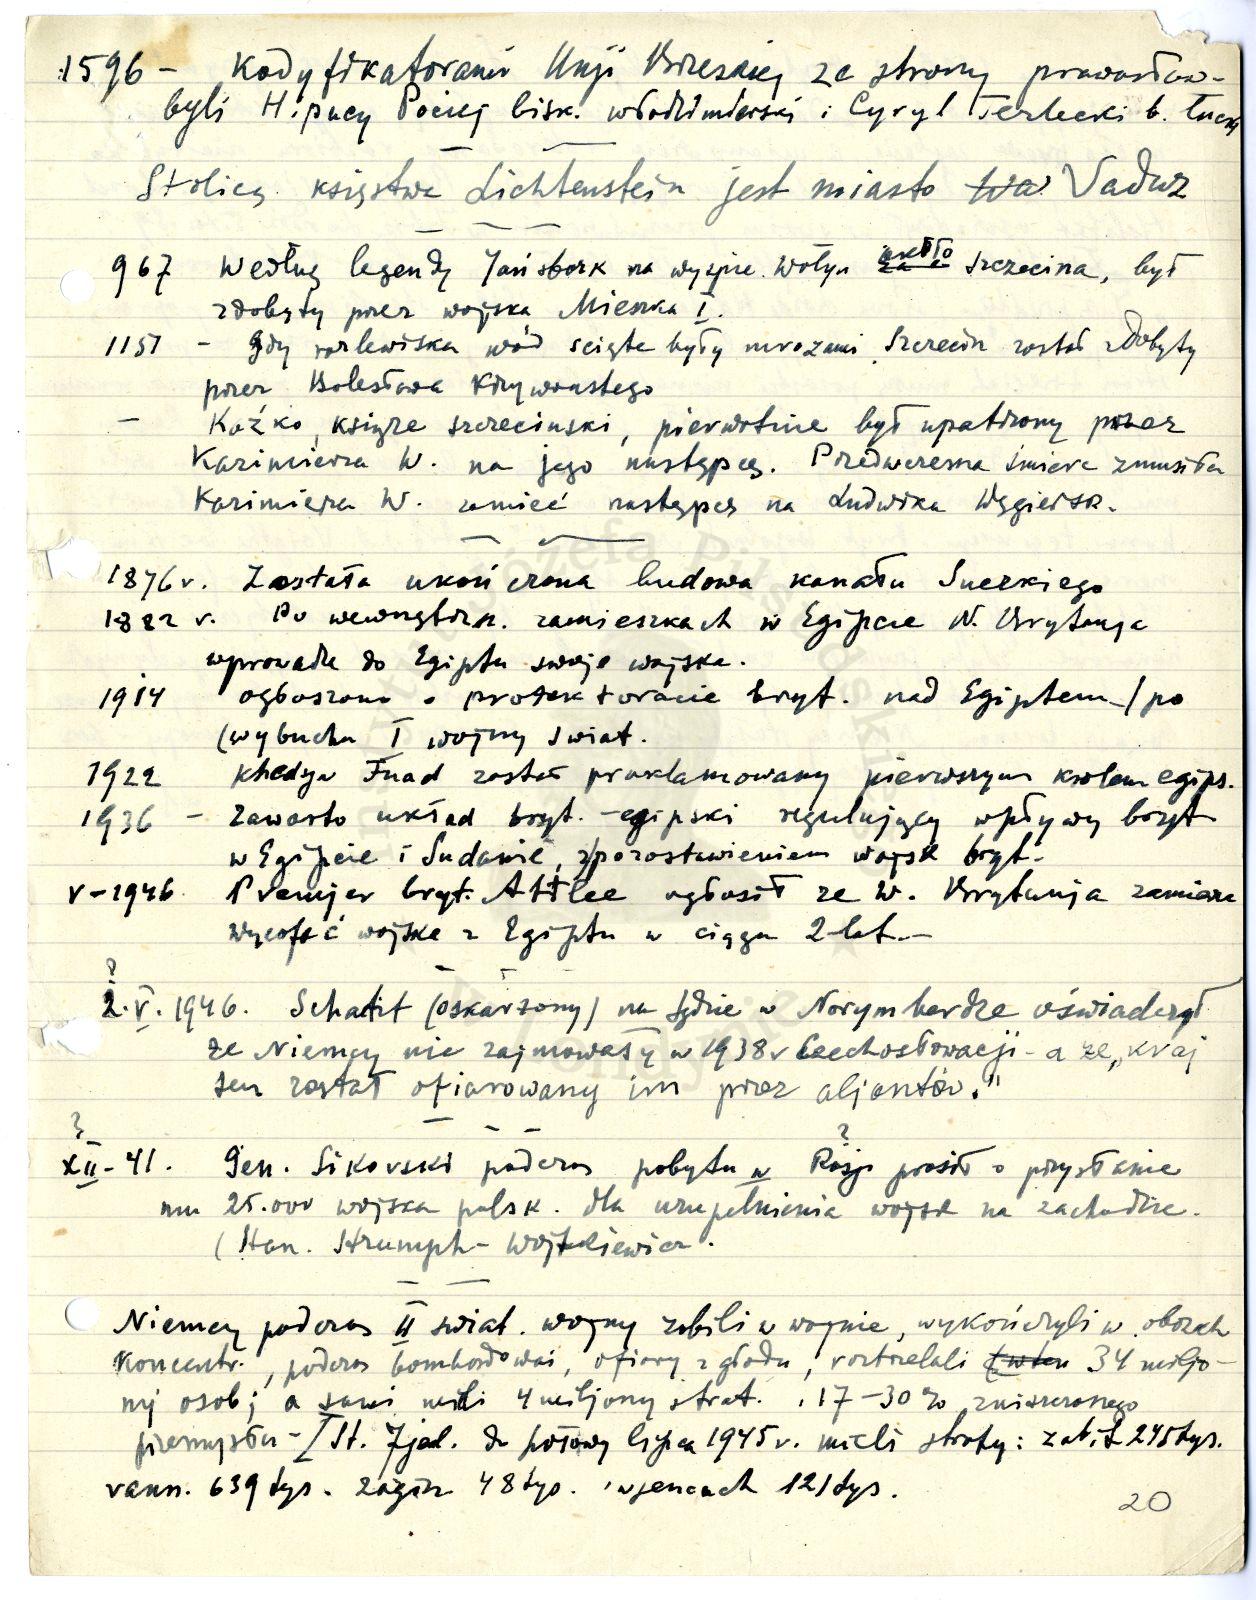 1596 - Kodyfikatorami Unji Brzeskiej ze strony prawosław-
byli Hipacy Pociej bisk. włodzimierski i Cyryl Terlecki b. łucki
Stolicą księstwa Lichtenstein jest miasto Wa Vaduz
967 Według legendy Jansbork na wyspie Wolyn około Szczecina, był
zdobyty przez wojska Mieszka I.
1151 - gdy rozlewiska wód ścięte były mrozami Szczecin został zdobyty
przez Bolesława Krzywoustego
- Kaźko, książę szczeciński, pierwotnie był upatrzony przez
Kazimierza W. na jego następcę. Przedwczesna śmierć zmusiła
Kazimierza W. zamieć następcę na Ludwika Węgiersk.
1876 r. Została ukończona budowa kanału Sueskiego
1882 r. Po wewnętrzn. zamieszkach w Egipcie W. Brytanja
wprowadz do Egiptu swoje wojska.
1914 ogłoszono o protektoracie bryt. nad Egiptem - / po
(wybuchu I wojny świat.
1922 Khedyw Fuad został proklamowany pierwszym królem egips.
1936 - Zawarto układ bryt. - egipski regulujący wpływy bryt
w Egipcie i Sudanie, z pozostawieniem wojsk bryt.
V - 1946 Premjer bryt. Attlee ogłosił że W. Brytanja zamierza
wycofać wojska z Egiptu w ciągu 2 lat. -
?
2. V. 1946. Schacht (oskarżony) na sądzie w Norymberdze oświadczył
że Niemcy nie zajmowały w 1938 r Czechosłowacji - a że „kraj
ten został ofiarowany im przez aljantów."
? ?
XII - 41. Gen. Sikorski podczas pobytu w Rosji prosił o przysłanie
mu 25.000 wojska polsk. dla uzupełnienia wojsk na zachodzie.
( Stan. Strumph - Wojtkiewicz.
Niemcy podczas II świat. wojny zabili w wojnie, wykończyli w obozach
koncentr., podczas bombardowań, ofiary z głodu, roztrzelali 34 miljo-
ny osób; a sami mieli 4 miljony strat. 17 - 30 % zniszczonego
przemysłu - / St. Zjed. do połowy lipca 1945 r. mieli straty: zabit 245 tys.
rann. 639 tys. zagin 48 tys. w jencach 121 tys.
20